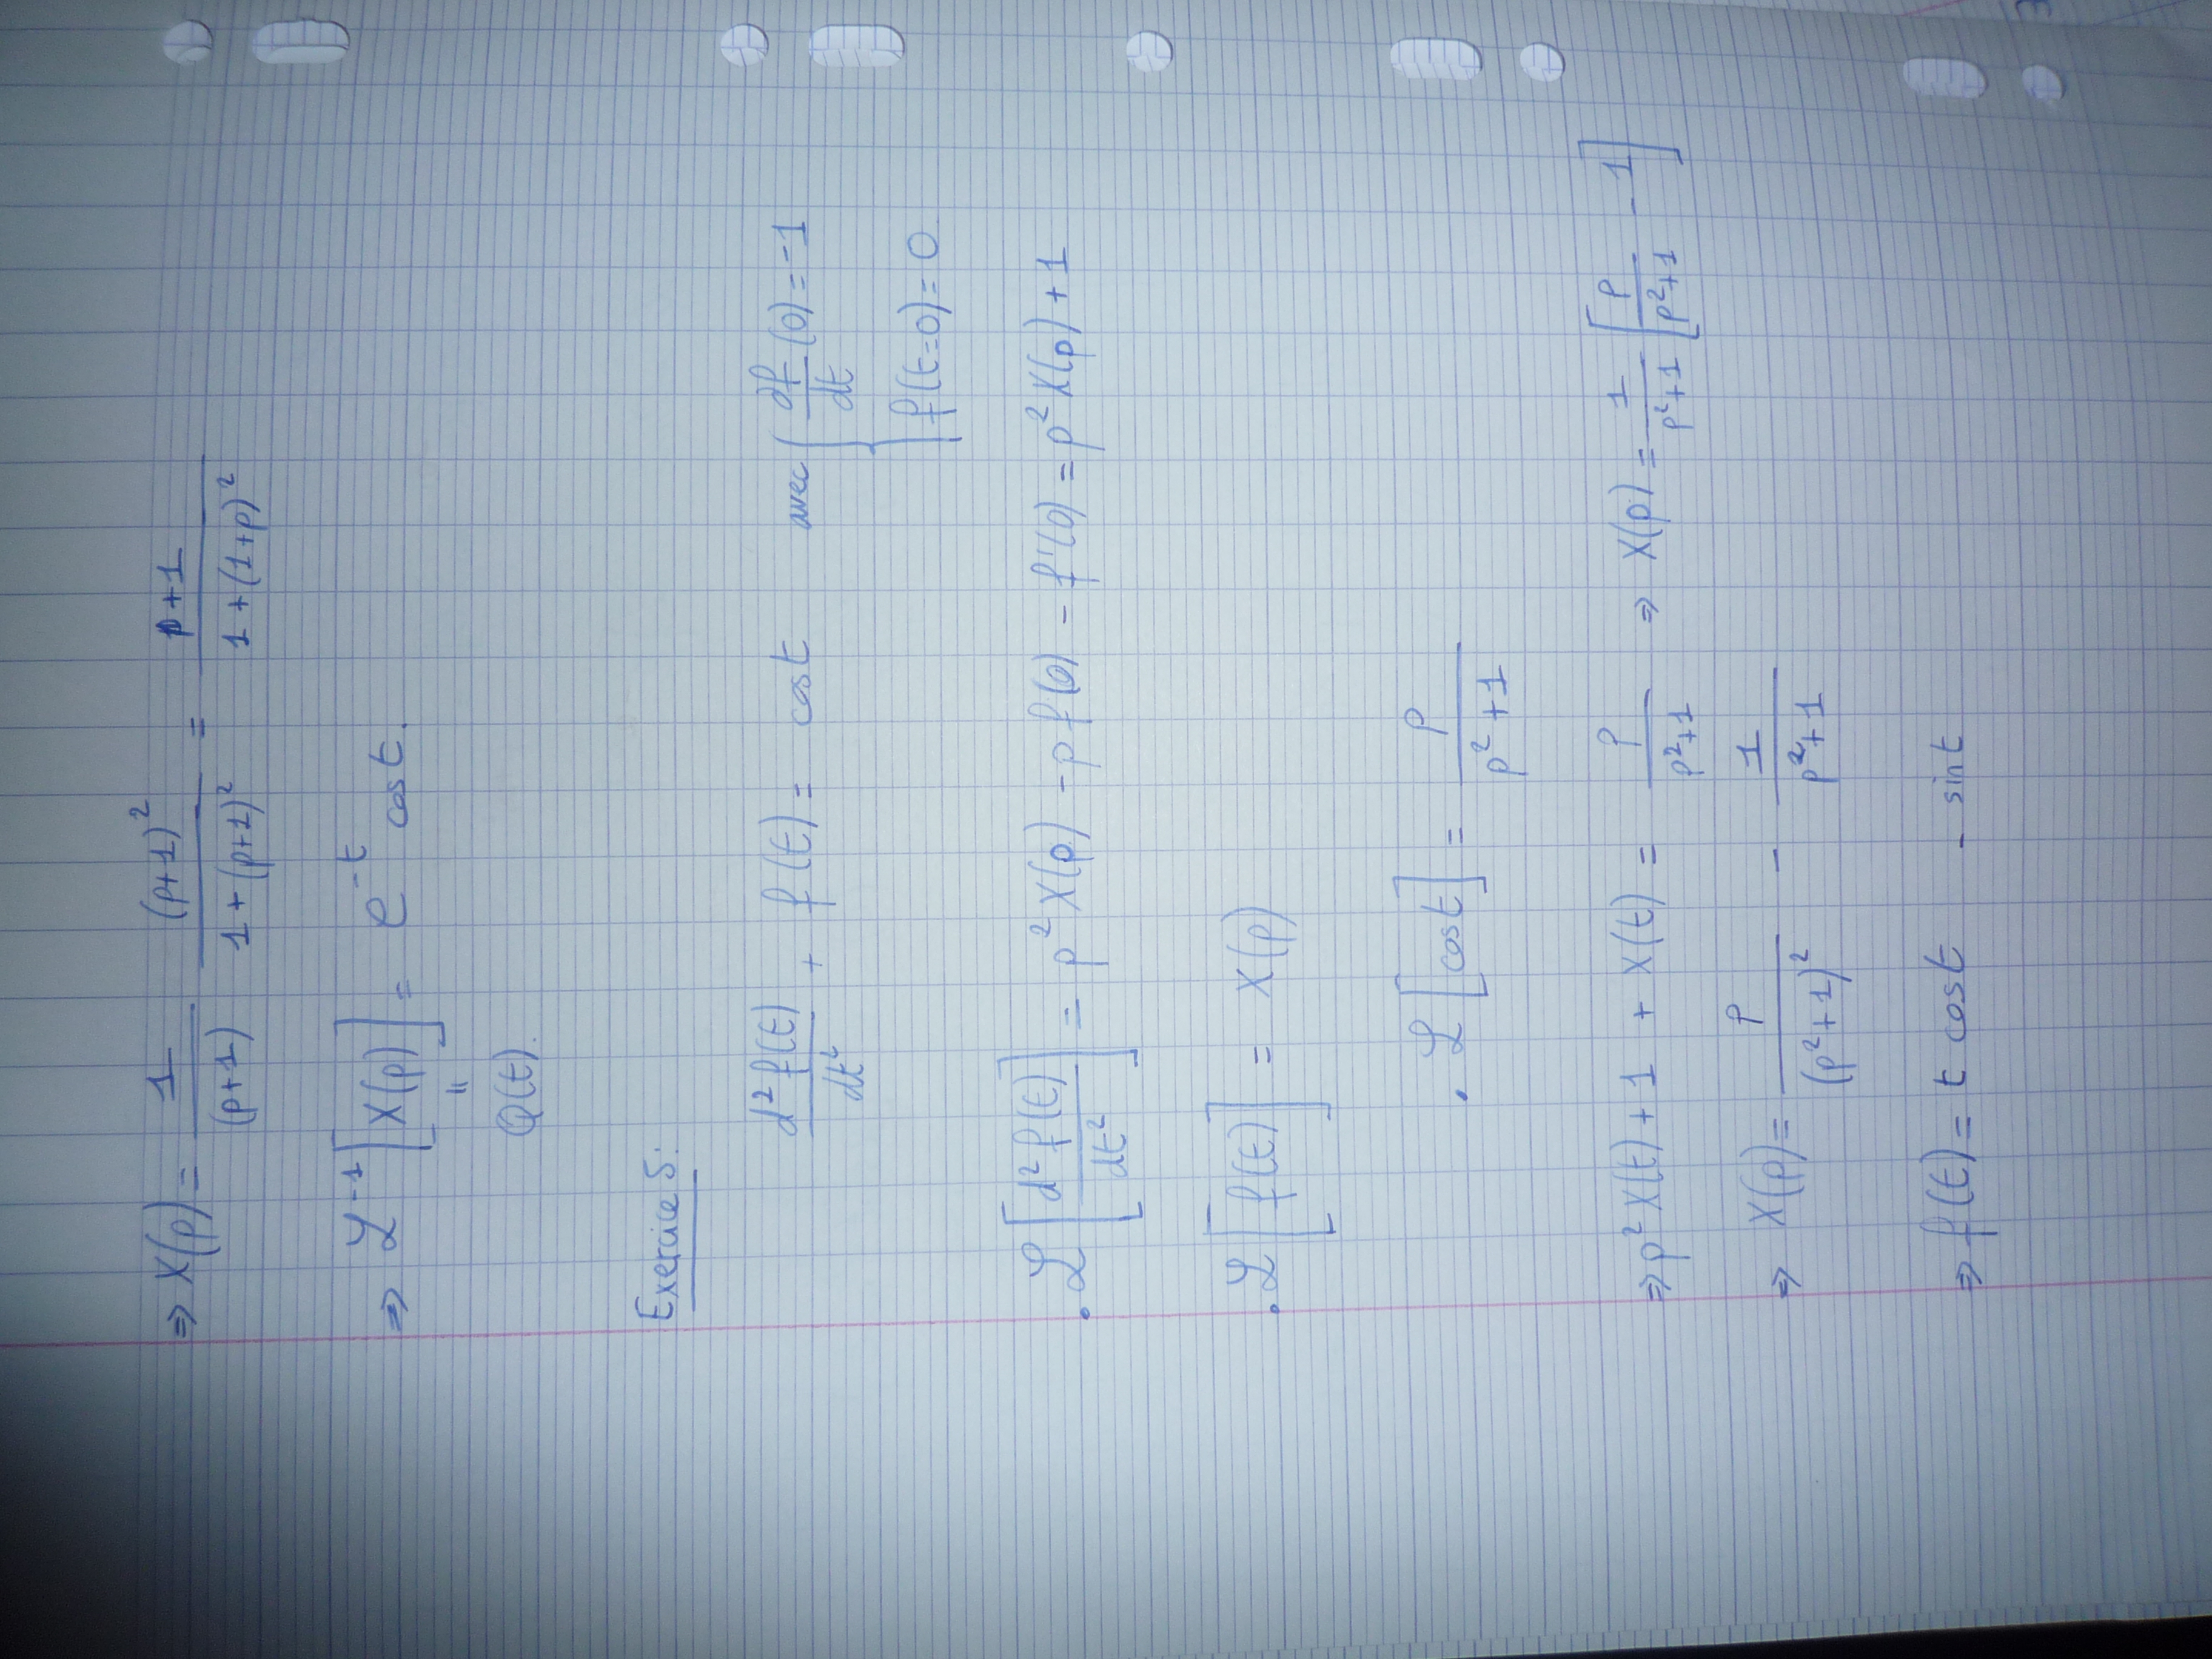 ⇒ X(p) = 1/(p+1) (p+1)²/(1+(p+1)²) = (p+1)/(1+(1+p)²)
⇒ ℒ⁻¹[X(p)] = e⁻ᵗ cos t.
"
Q(t).
Exercice 5:
d²f(t)/dt² + f(t) = cos t avec { df/dt (0) = -1
f(t=0) = 0
• ℒ[d²f(t)/dt²] = p² X(p) - p f(0) - f'(0) = p² X(p) + 1
• ℒ[f(t)] = X(p)
• ℒ[cos t] = p/(p²+1)
⇒ p² X(t) + 1 + X(t) = p/(p²+1) ⇒ X(p) = 1/(p²+1) [p/(p²+1) - 1]
⇒ X(p) = p/(p²+1)² - 1/(p²+1)
⇒ f(t) = t cos t - sin t